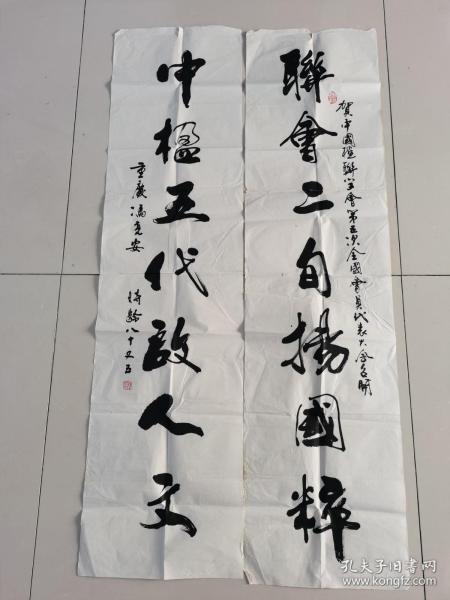 賀中國楹聯學會第五次全國會員代表大會召開
聯會二旬揚國粹
中楹五代啟人文
重慶馮克安
時齡八十又五
孔夫子旧书网
www.kongfz.com